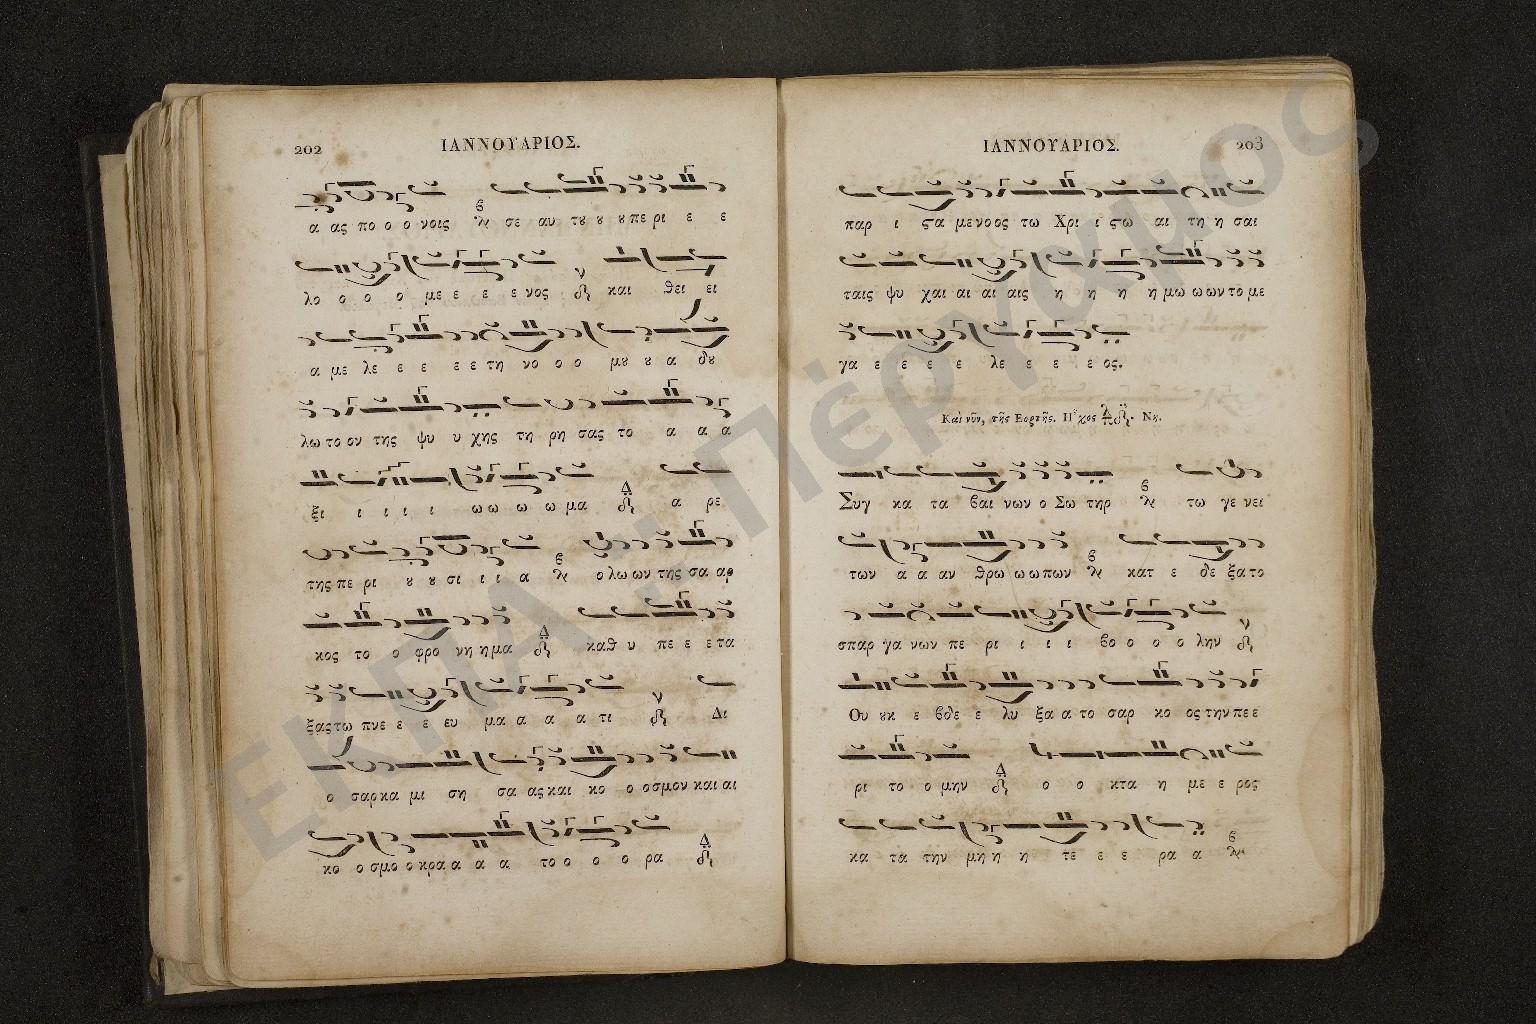 202
ΙΑΝΝΟΥΑΡΙΟΣ.
α ας πο ο ο νοις σε αυ τȣ ȣ ȣ περι ε ε
λο ο ο ο με ε ε ε νος και θει ει
α με λε ε ε ε ε τη νο ο ο μȣ ȣ α δȣ
λω το ον της ψυ υ χης τη ρη σας το α α α
ξι ι ι ι ι ω ω ω ω μα α ρε
της πε ρι ȣ ȣ σι ι ι α ο λω ων της σα αρ
κος το ο φρο νη η μα καθ υ πε ε ε τα
ξας τω πνε ε ε ευ μα α α α τι Δι
ο σαρκα μι ση σα ας και κο ο οσμον και αι
κο ο σμο ο κρα α α α το ο ο ο ρα
ΙΑΝΝΟΥΑΡΙΟΣ.
203
παρ ι ϛα με νο ος τω Χρι ι ϛω αι τη η σαι
ταις ψυ χαι αι αι αι αις η η η η μω ω ων το με
γα ε ε ε ε λε ε ε ε ος.
Καὶ νῦν, τῆς Εορτῆς. Ηχος Νη.
Συγ κα τα βαι νων ο Σω τηρ τω γε νει
των α α αν θρω ω ω πων κατ ε δε ξα το
σπαρ γα νων πε ρι ι ι ι βο ο ο ο λην
Ου ȣκ ε βδε ε λυ ξα α το σαρ κο ος την πε ε
ρι το ο μην ο ο κτα η με ε ρος
κα τα την μη η η τε ε ε ρα α
ΕΚΠΑ : Πέργαμος